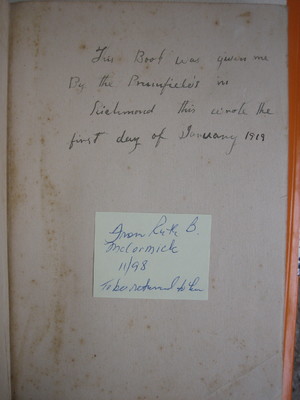 This Book was given me
By the Brumfield's in
Richmond this wrote the
first day of January 1919
From Ruth B.
McCormick
11/98
To be returned to